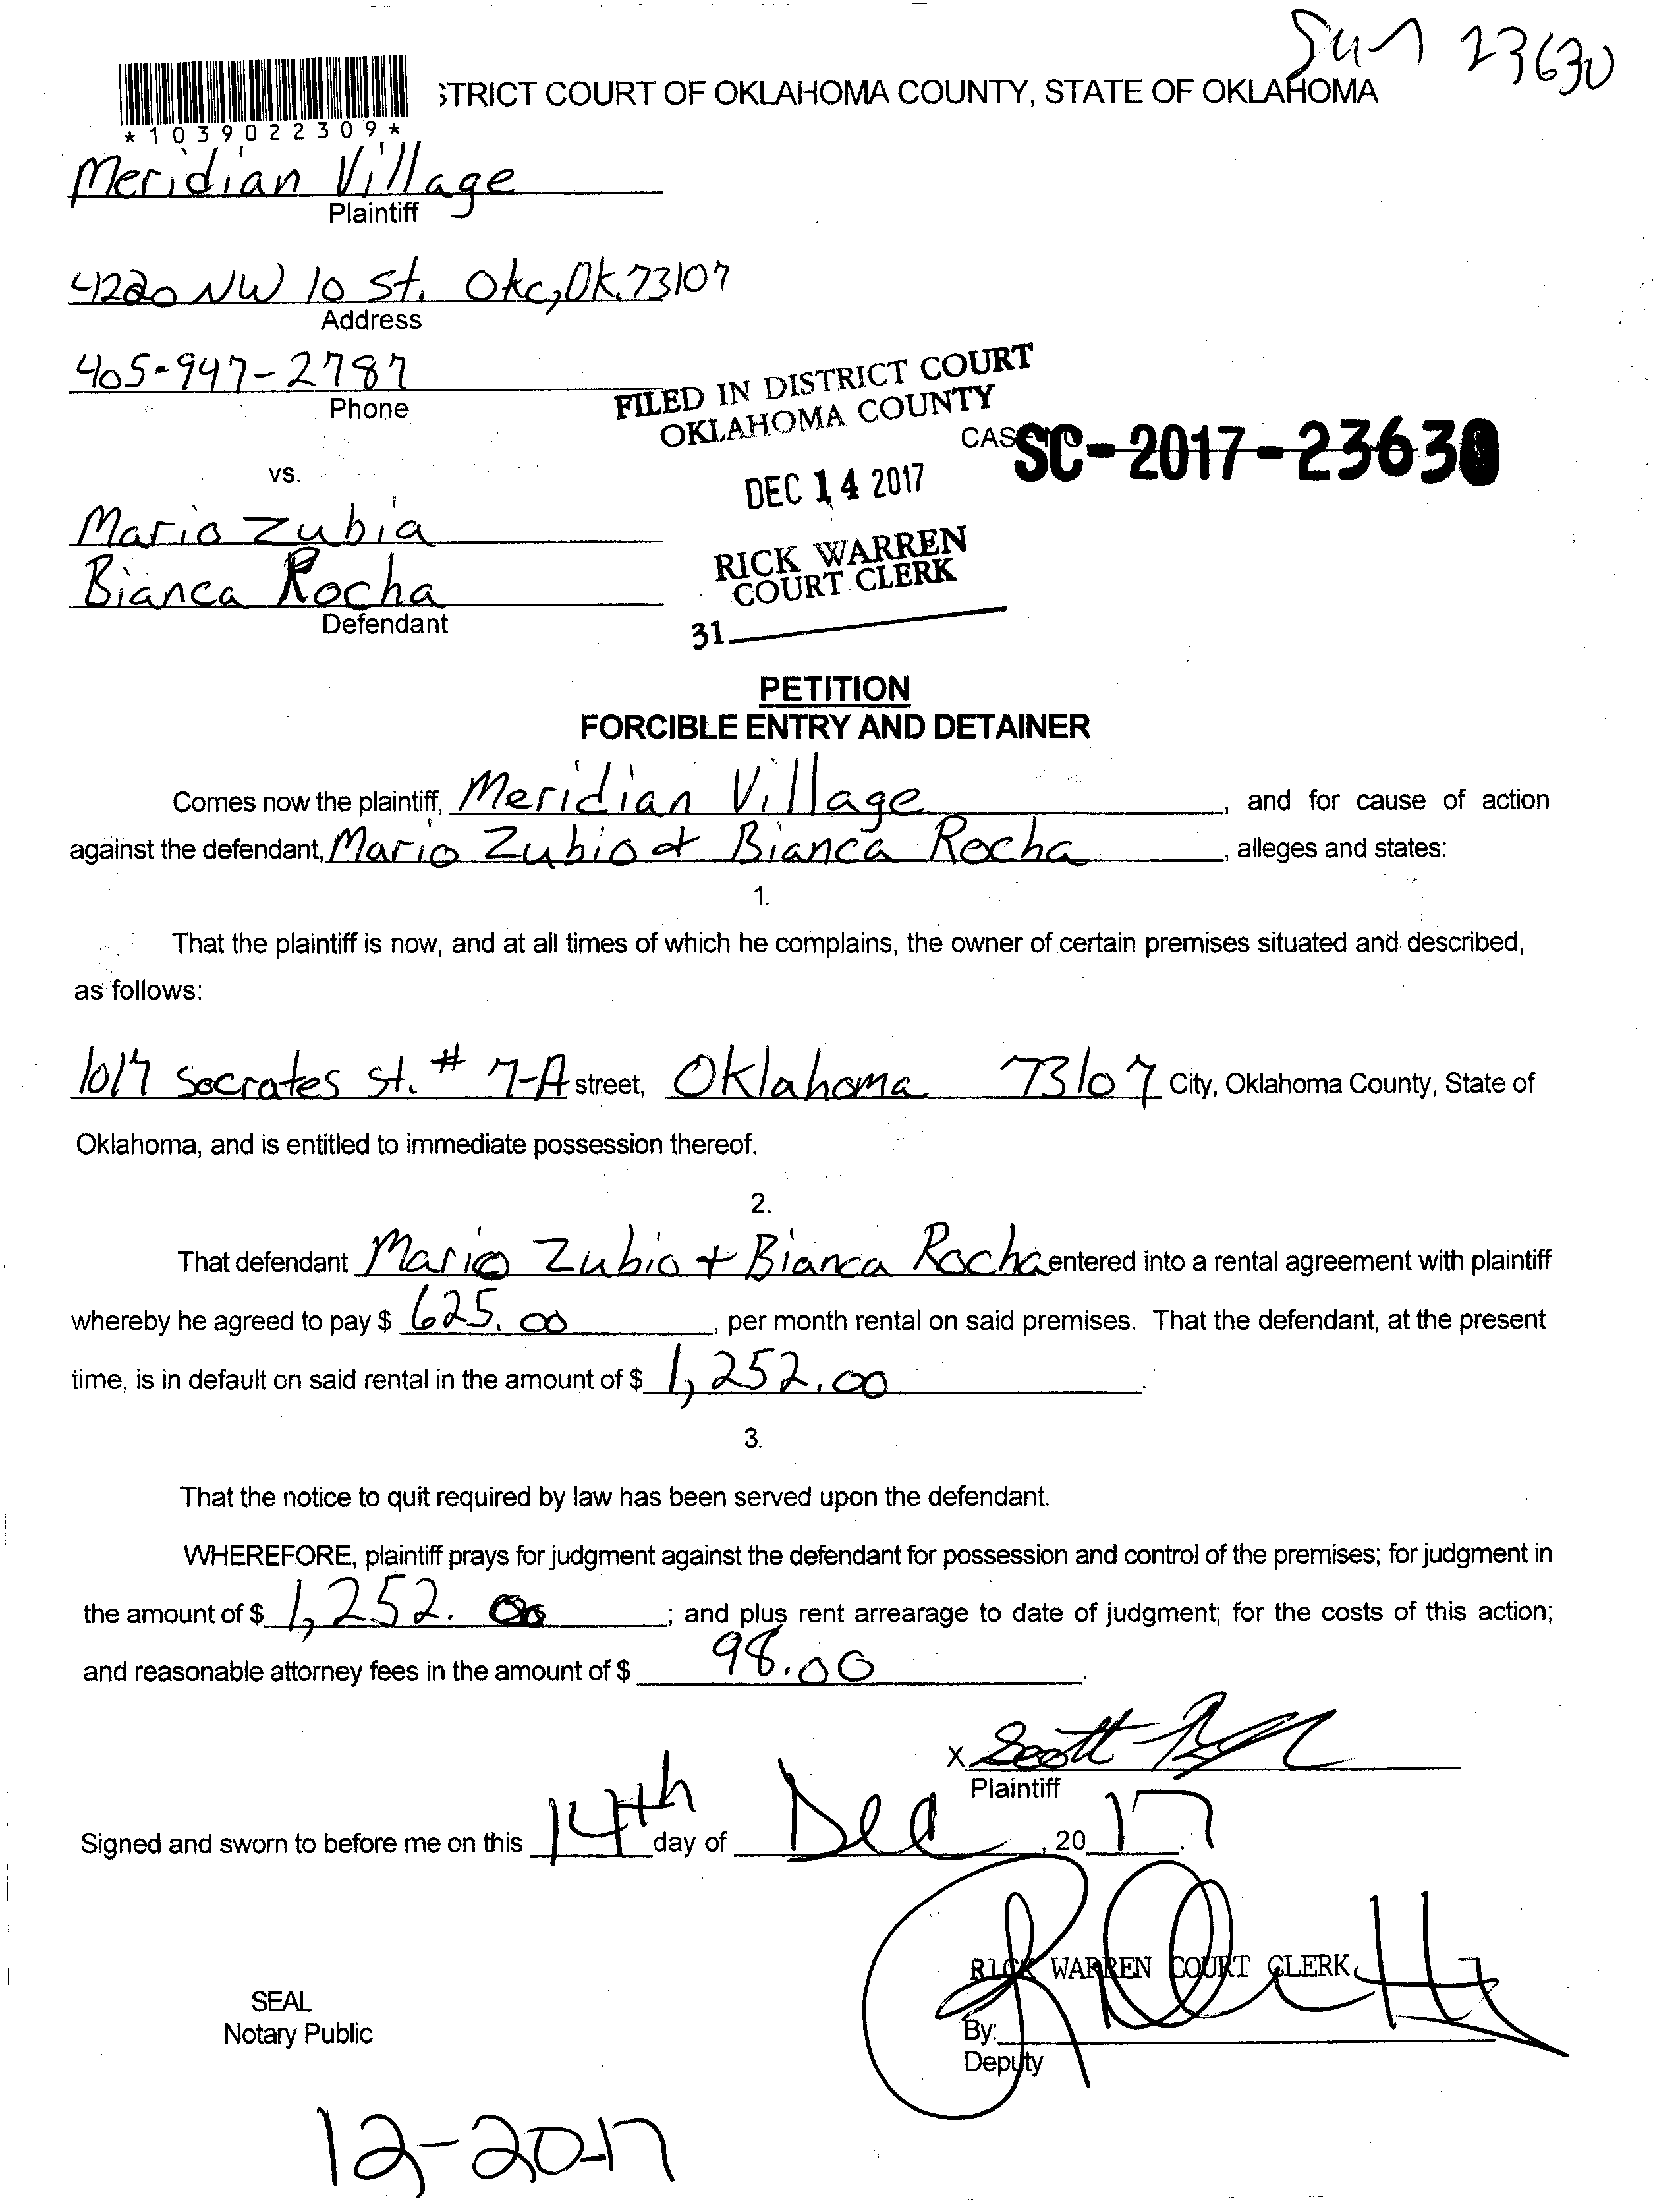 Sun 23630
STRICT COURT OF OKLAHOMA COUNTY, STATE OF OKLAHOMA
*1039022309*
Meridian Village
Plaintiff
4220 NW 10 St. Okc, Ok. 73107
Address
405-947-2787
Phone
FILED IN DISTRICT COURT
OKLAHOMA COUNTY
CAS SC-2017-23630
vs.
DEC 14 2017
Mario Zubia
RICK WARREN
COURT CLERK
Bianca Rocha
Defendant
31
PETITION
FORCIBLE ENTRY AND DETAINER
Comes now the plaintiff, Meridian Village, and for cause of action
against the defendant, Mario Zubio & Bianca Rocha, alleges and states:
1.
That the plaintiff is now, and at all times of which he complains, the owner of certain premises situated and described,
as follows:
1017 Socrates St. # 7-A street, Oklahoma 73107 City, Oklahoma County, State of
Oklahoma, and is entitled to immediate possession thereof.
2.
That defendant Mario Zubio + Bianca Rocha entered into a rental agreement with plaintiff
whereby he agreed to pay $ 625.00, per month rental on said premises. That the defendant, at the present
time, is in default on said rental in the amount of $ 1,252.00.
3.
That the notice to quit required by law has been served upon the defendant.
WHEREFORE, plaintiff prays for judgment against the defendant for possession and control of the premises; for judgment in
the amount of $ 1,252.00; and plus rent arrearage to date of judgment; for the costs of this action;
and reasonable attorney fees in the amount of $ 98.00.
X Scott
Plaintiff
Signed and sworn to before me on this 14th day of Dec, 20 17.
RICK WARREN COURT CLERK
SEAL
Notary Public
By:
Deputy
12-20-17